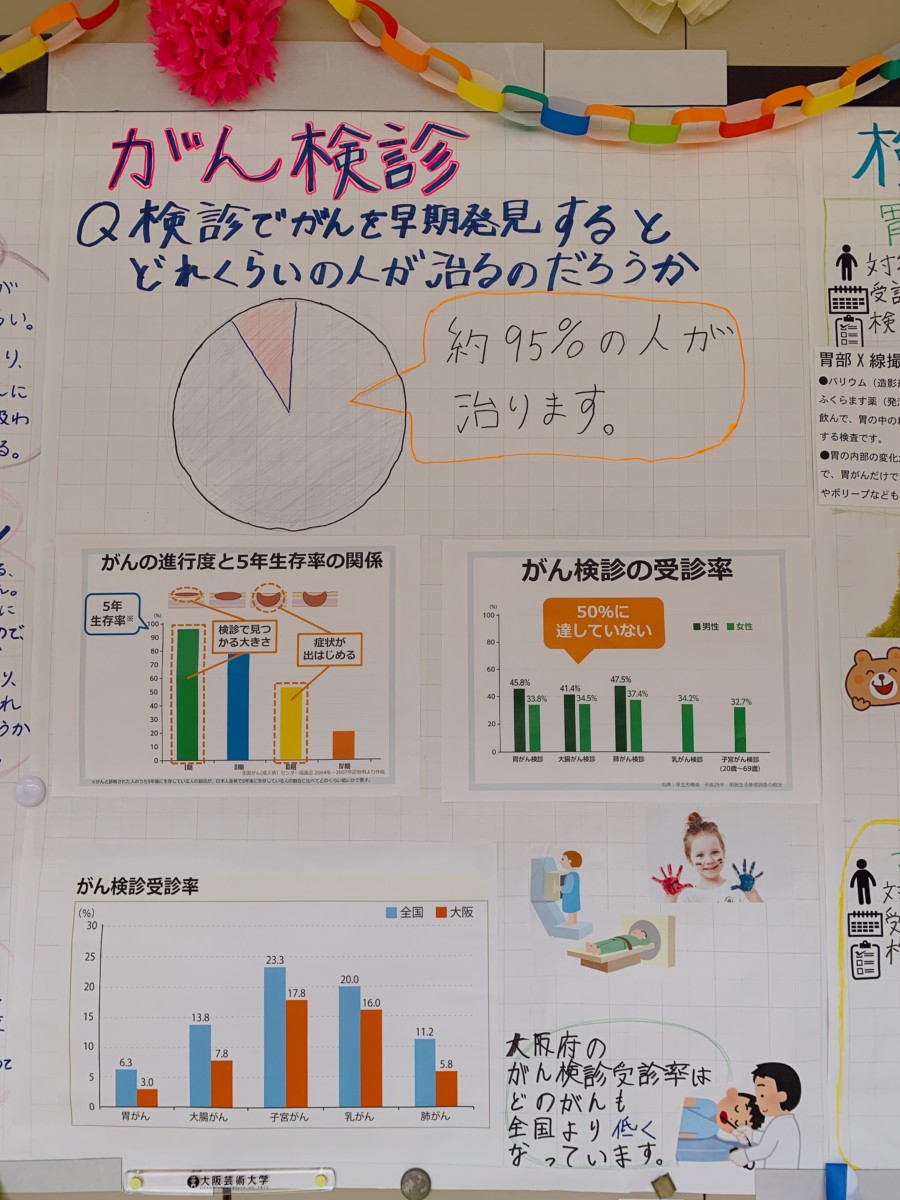 がん検診
Q検診でがんを早期発見すると
どれくらいの人が治るのだろうか
約95%の人が
治ります。
がんの進行度と5年生存率の関係
5年
生存率※
検診で見つ
かる大きさ
症状が
出はじめる
(%)
100
90
80
70
60
50
40
30
20
10
0
Ⅰ期
Ⅱ期
Ⅲ期
Ⅳ期
がん検診の受診率
50%に
達していない
男性 女性
(%)
100
80
60
40
20
0
45.8%
33.8%
41.4%
34.5%
47.5%
37.4%
34.2%
32.7%
胃がん検診
大腸がん検診
肺がん検診
乳がん検診
子宮がん検診
(20歳〜69歳)
がん検診受診率
(%)
全国 大阪
30
25
20
15
10
5
0
6.3
3.0
13.8
7.8
23.3
17.8
20.0
16.0
11.2
5.8
胃がん
大腸がん
子宮がん
乳がん
肺がん
大阪府の
がん検診受診率は
どのがんも
全国より低く
なっています。
大阪芸術大学
検
胃
対
受診
検
胃部X線撮
●バリウム(造影
ふくらます薬(発
飲んで、胃の中の
する検査です。
●胃の内部の変化
で、胃がんだけで
やポリープなども
対
受
検